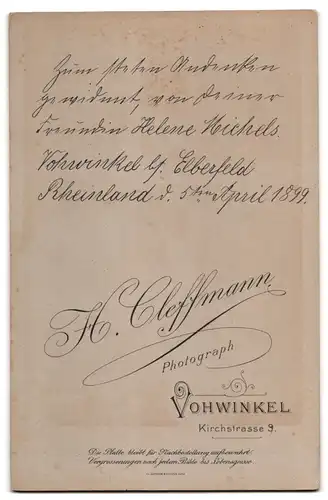 Zum steten Andenken
gewidmet, von Deiner
Freundin Helene Michels.
Vohwinkel b/ Elberfeld
Rheinland d. 5ten April 1899.
H. Cleffmann.
Photograph
VOHWINKEL
Kirchstrasse 9.
Die Platte bleibt für Nachbestellung aufbewahrt.
Vergrösserungen nach jedem Bilde bis Lebensgrösse.